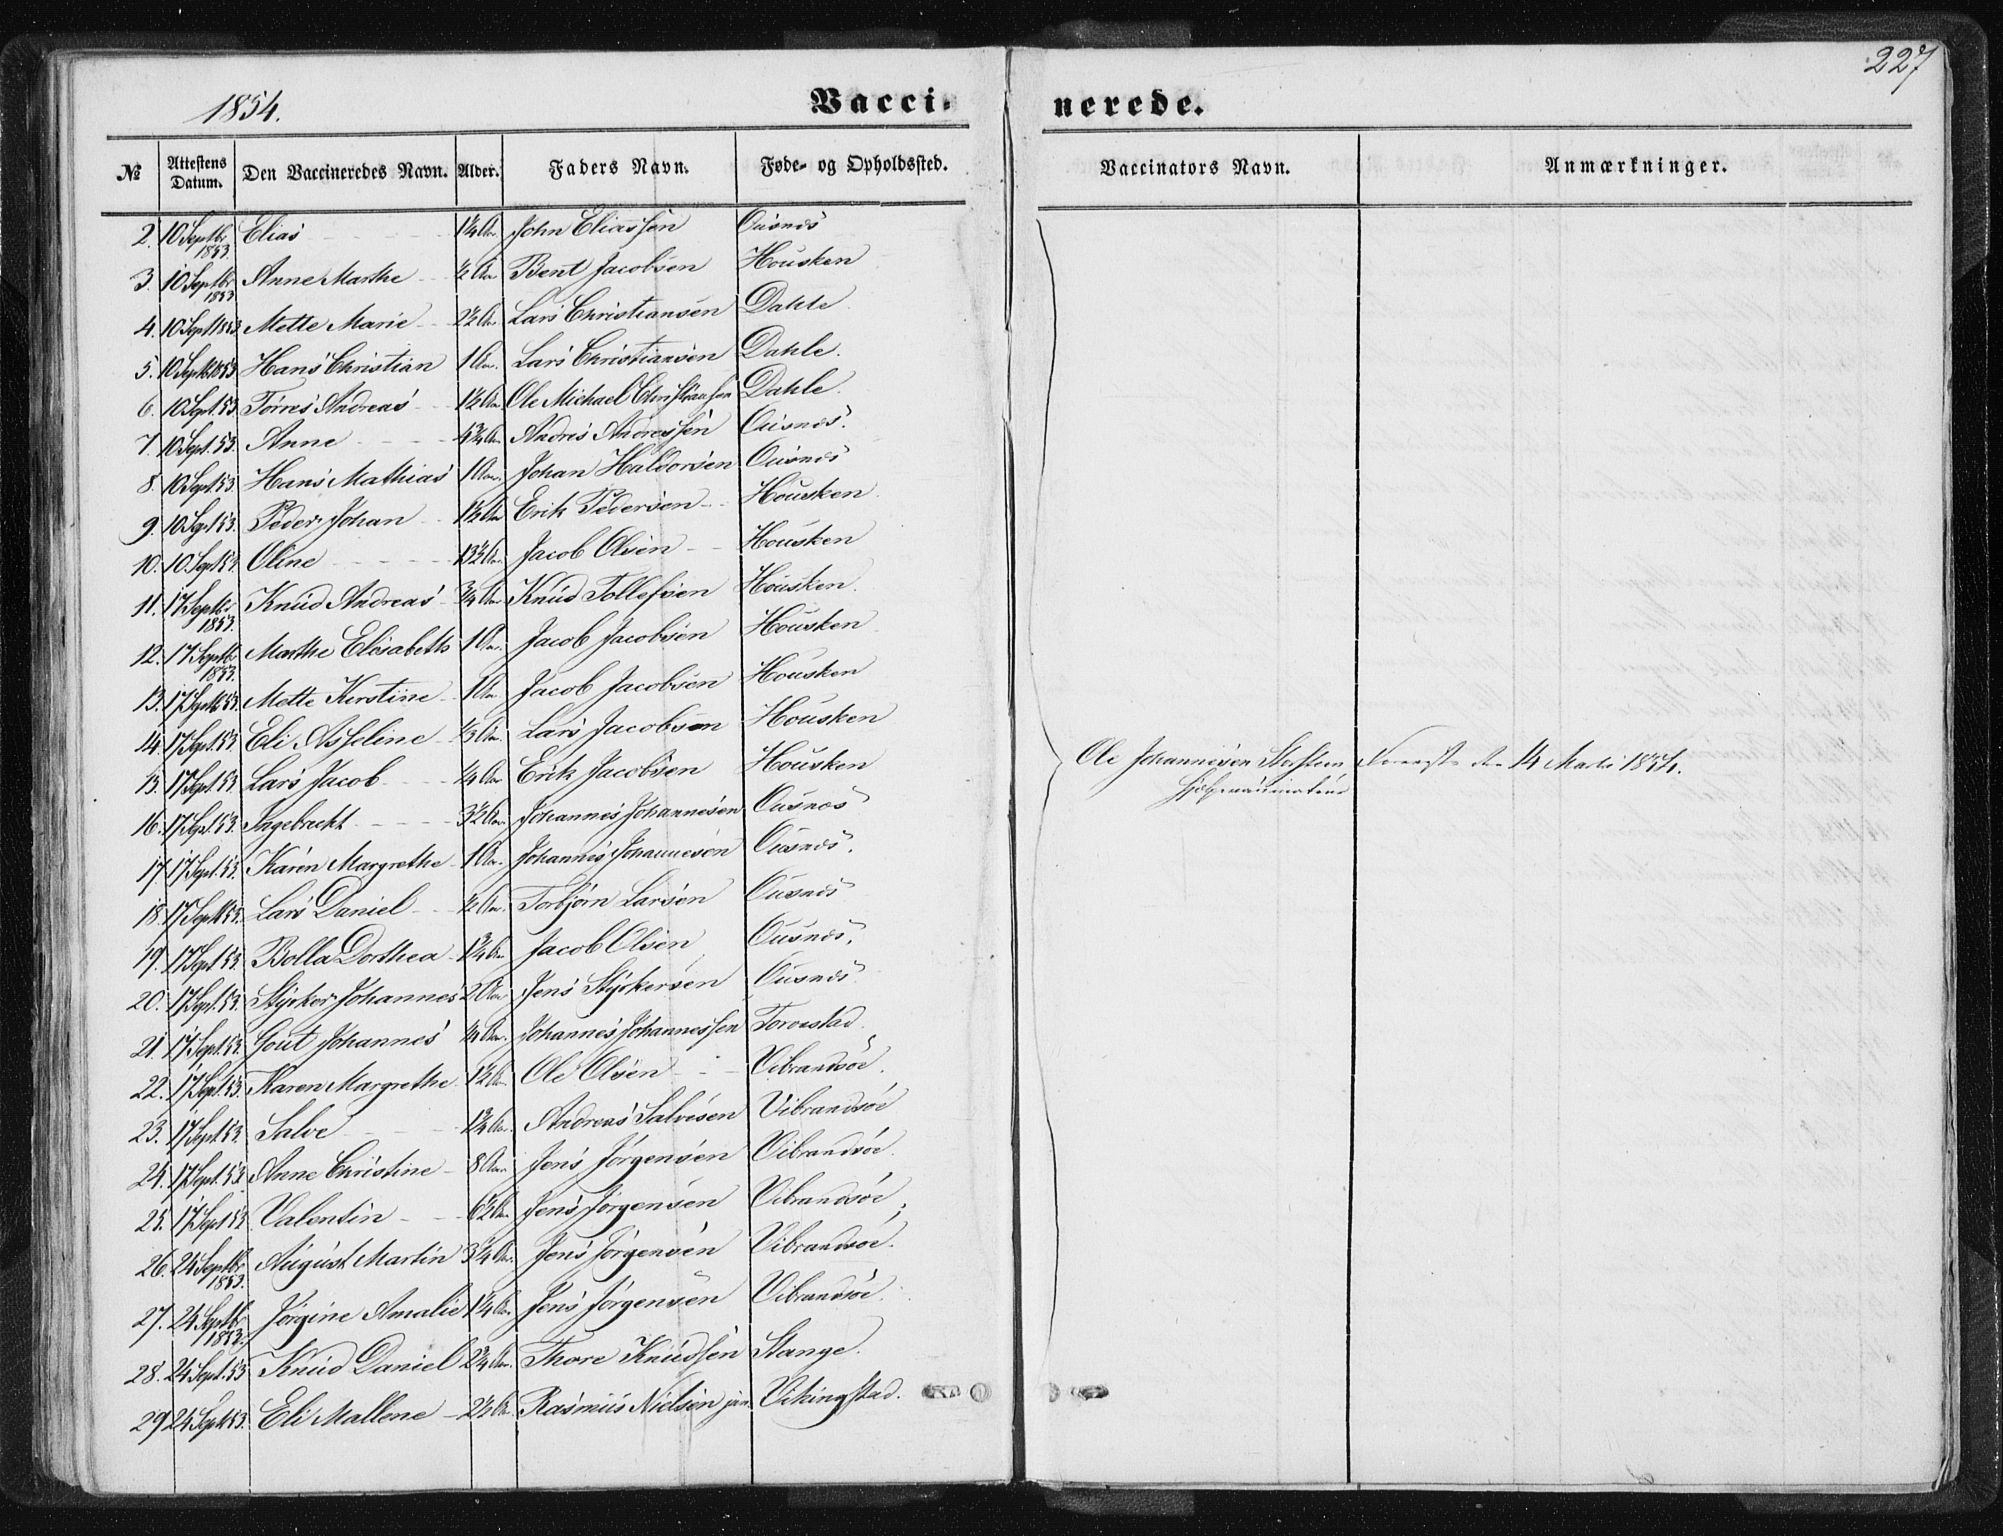 227
1854. Vacci- nerede.
№ Attestens Datum. Den Vaccineredes Navn. Alder. Faders Navn. Føde- og Opholdssted. Vaccinators Navn. Anmærkninger.
2. 10 Septbr 1853. Elias John Eliassen Ousnes
3. 10 Septbr 1853 Anne Marthe ½ Aar Bent Jacobsen Housken
4. 10 Sept 1853 Mette Marie 2½ Aar Lars Christiansen Dahle
5. 10 Sept 1853 Hans Christian 1 Aar. Lars Christiansen Dahle.
6. 10 Sept. 53 Torres Andreas 1½ Aar Ole Michael Christiansen Dahle.
7. 10 Sept. 53. Anne 4¾ Aar Andres Andressen Ousnes.
8. 10 Sept. 53. Hans Mathias 1 Aar. Johan Haldorsen Ousnes
9. 10 Sept 53. Peder Johan 1½ Aar Erik Pedersen Housken
10. 10 Sept 53. Oline 13½ Aar. Jacob Olsen Housken
11. 17 Septbr 1853. Knud Andreas ¾ Aar Knud Tollefsen Housken.
12. 17 Septbr 1853. Marthe Elisabeth 1 Aar. Jacob Jacobsen Housken
13. 17 Sept 53. Mette Kirstine 1 Aar Jacob Jacobsen Housken
14. 17 Sept. 53 Eli Asseline Lars Jacobsen Housken
15. 17 Sept. 53 Lars Jacob ¼ Aar Erik Jacobsen Housken
Ole Johannesen Storsteen den 14 Marts 1854.
16. 17 Sept. 53. Ingebrekt 3½ Aar. Johannes Johannesen Ousnes
17. 17 Sept. 53. Karen Margrethe 1 Aar. Johannes Johannesen Ousnes.
18. 17 Sept 53. Lars Daniel ½ Aar. Torbjørn Larsen Ousnes
19. 17 Sept. 53. Bolla Dorthea 1¾ Aar Jacob Olsen Ousnes.
20. 17 Sept. 53. Styrker Johannes 2 Aar Jens Styrkersen Ousnes
21. 17 Sept. 53. Gout Johannes Johannes Johannessen Torvestad.
22. 17 Sept. 53. Karen Margrethe 1½ Aar Ole Olsen Vibrandsøe.
23. 17 Sept. 53. Salve Andreas Salvesen Vibrandsøe
24. 17 Sept. 53. Anne Christine 8 Aar Jens Jørgensen Vibrandsøe.
25. 17 Sept 53 Valentin 6½ Aar Jens Jørgensen Vibrandsøe
26. 24 Septbr 1853. August Martin 3¼ Aar. Jens Jørgensen Vibrandsøe.
27. 24 Septbr 1853. Jørgine Amalie 1¼ Aar Jens Jørgensen Vibrandsøe.
28. 24 Sept. 53 Knud Daniel 2¾ Aar. Thore Knudsen Stange.
29 24 Sept 53. Eli Mallene 2½ Aar Rasmus Nielsen jun Vikingstad.